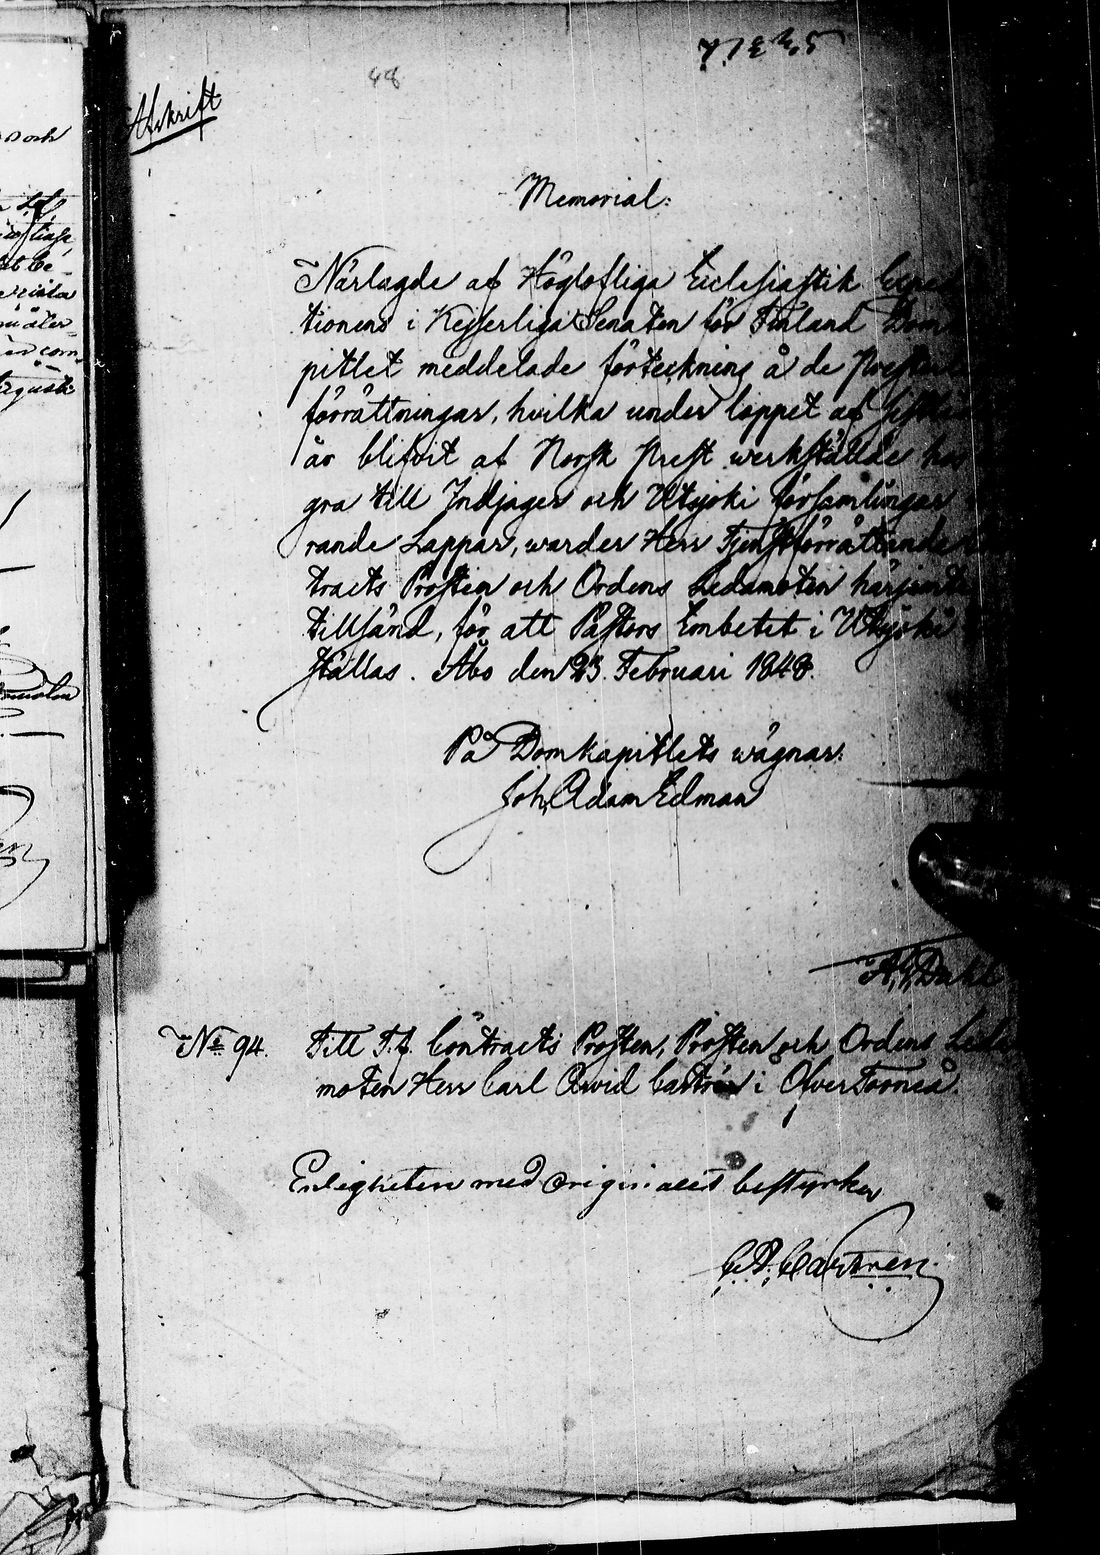 48
Afskrift
Memorial:
Närlagde af Höglofliga Ecclesiastik Expedi
tionens i Kejserliga Senaten för Finland Dom
pitlet meddelade förteckning å de Presterl
förrättningar, hvilka under loppet af sistlid
år blifvit af Norsk Prest werkstälde hos
gra till Indjager och Utsjoki församlingar
rande Lappar, warder Herr Tjenstförrättande
tracts Prosten och Ordens Ledamoten härjemte
tillsänd, för att Pastors Embetet i Utsjoki
ställas. Åbo den 23. Februari 1848.
På Domkapitlets wägnar:
Joh. Adam Edman
A. G. Dahl
No 94. Till T. f. Contracts Prosten, Prosten och Ordens Leda
moten Herr Carl Arvid Castrén i Öfver Torneå.
Enligheten med originalet bestyrker
C. A. Castrén.